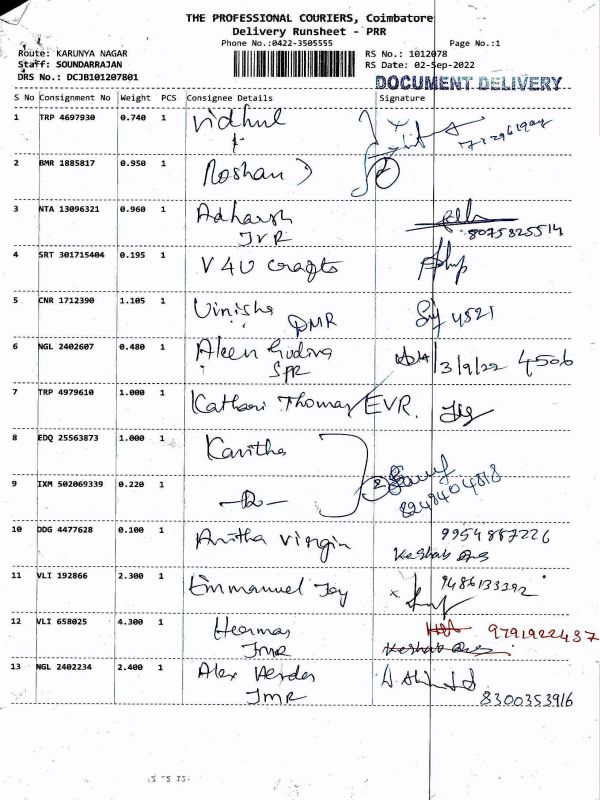 THE PROFESSIONAL COURIERS, Coimbatore
Delivery Runsheet - PRR
Phone No.:0422-3505555 Page No.:1
Route: KARUNYA NAGAR RS No.: 1012078
Staff: SOUNDARRAJAN RS Date: 02-Sep-2022
DRS No.: DCJB101207801 DOCUMENT DELIVERY
S No Consignment No Weight PCS Consignee Details Signature
1 TRP 4697930 0.740 1 Vidhul
2 BMR 1885817 0.950 1 Roshan 2
3 NTA 13096321 0.960 1 Adharsh
JVR 8075825514
4 SRT 301715404 0.195 1 V4U
5 CNR 1712390 1.105 1 Vinisha 4521
DMR
6 NGL 2402607 0.480 1 3/9/22 4506
SPR
7 TRP 4979610 1.000 1 Thomas EVR.
8 EDQ 25563873 1.000 1 Kavitha
9 IXM 502069339 0.220 1 2
10 DDG 4477628 0.100 1 Anitha Virgin 9954887226
Keshab Das
11 VLI 192866 2.300 1 Emmanuel Joy 9486133392
12 VLI 658025 4.300 1 Heermas 9791922437
JMR Keshab Das
13 NGL 2402234 2.400 1 Alex
JMR 8300353916